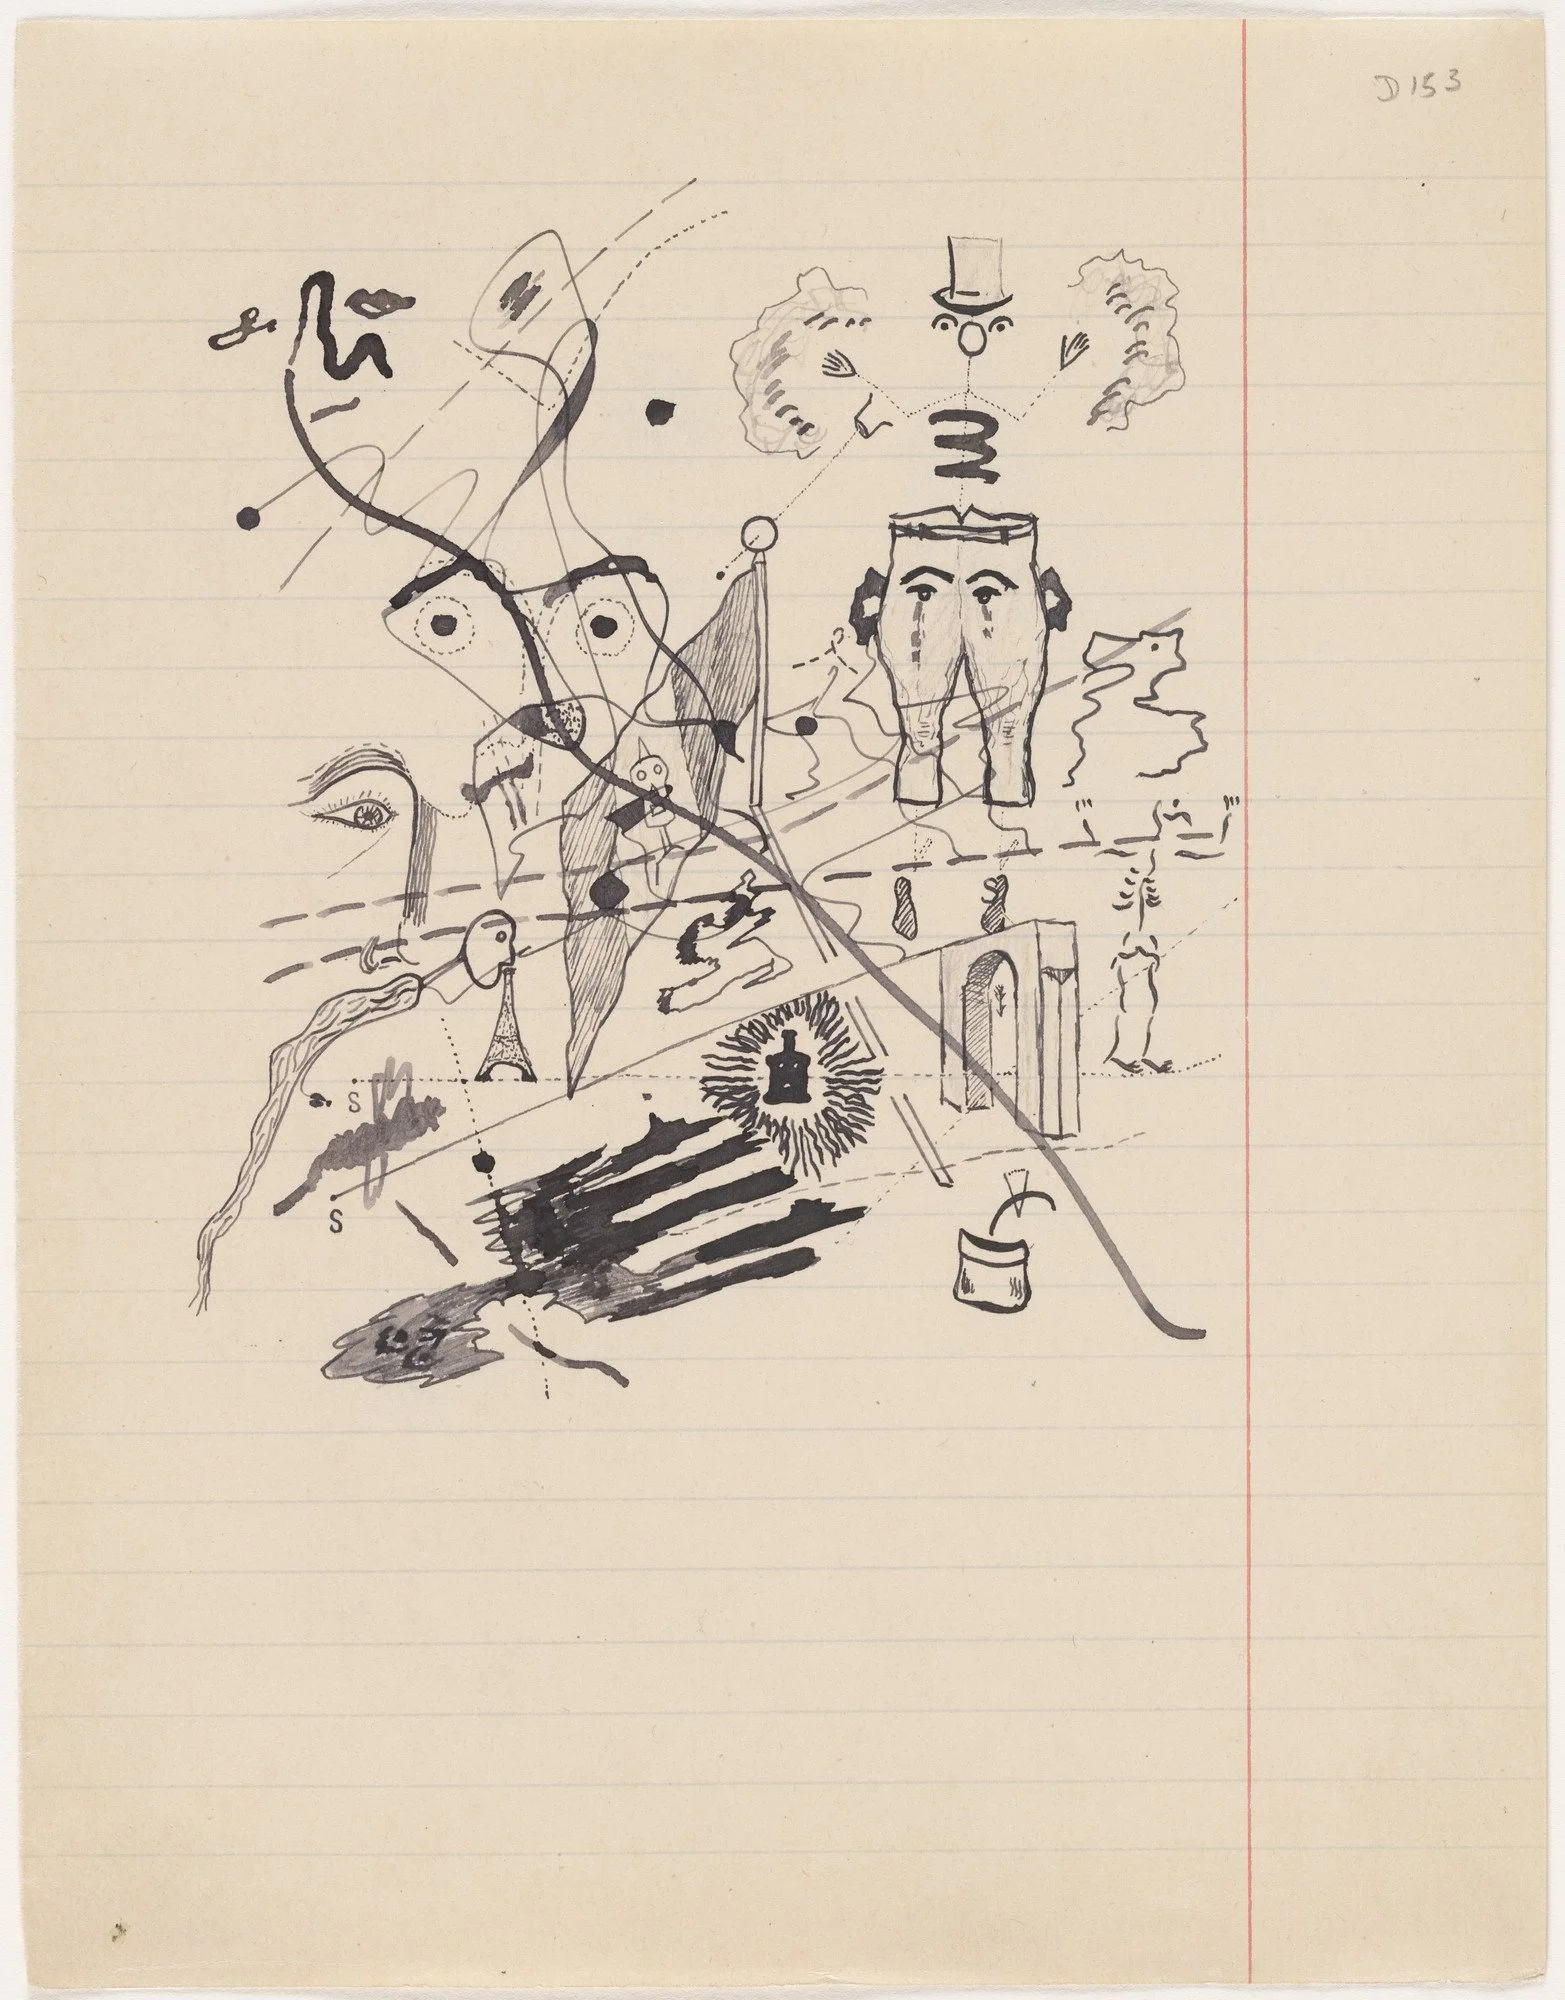 D 153
S
S